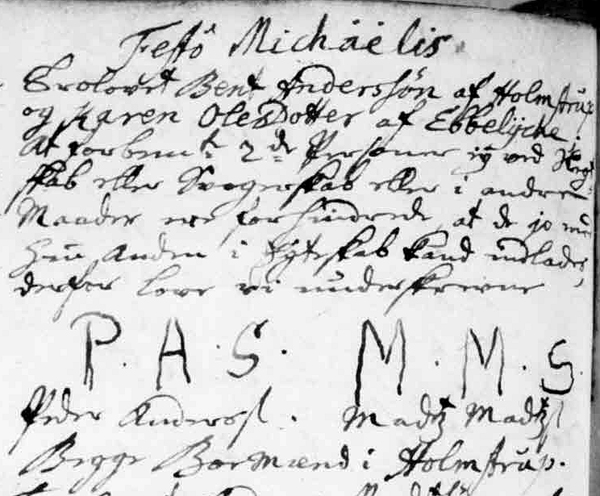 Festô Michaëlis
Trolovet Bent Anderssøn af Holmstrup
og Karen Olesdotter af Ebbelÿcke.
At forbemte 2de Personer ej ved Slegt-
skab eller Svogerskab eller i andre
Maader ere forhindrede at de jo med
hin anden i Egteskab kand indlades,
derfor love vi underskrevne
P. A. S. M. M. S.
Peder Anders. Madtz Madtz
Begge Boemænd i Holmstrup.